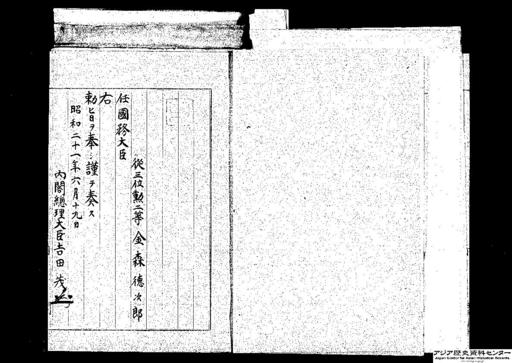 從三位勲二等 金森德次郎
任國務大臣
右
勅旨ヲ奉シ謹テ奏ス
昭和二十一年六月十九日
內閣總理大臣吉田茂
アジア歴史資料センター
Japan Center for Asian Historical Records